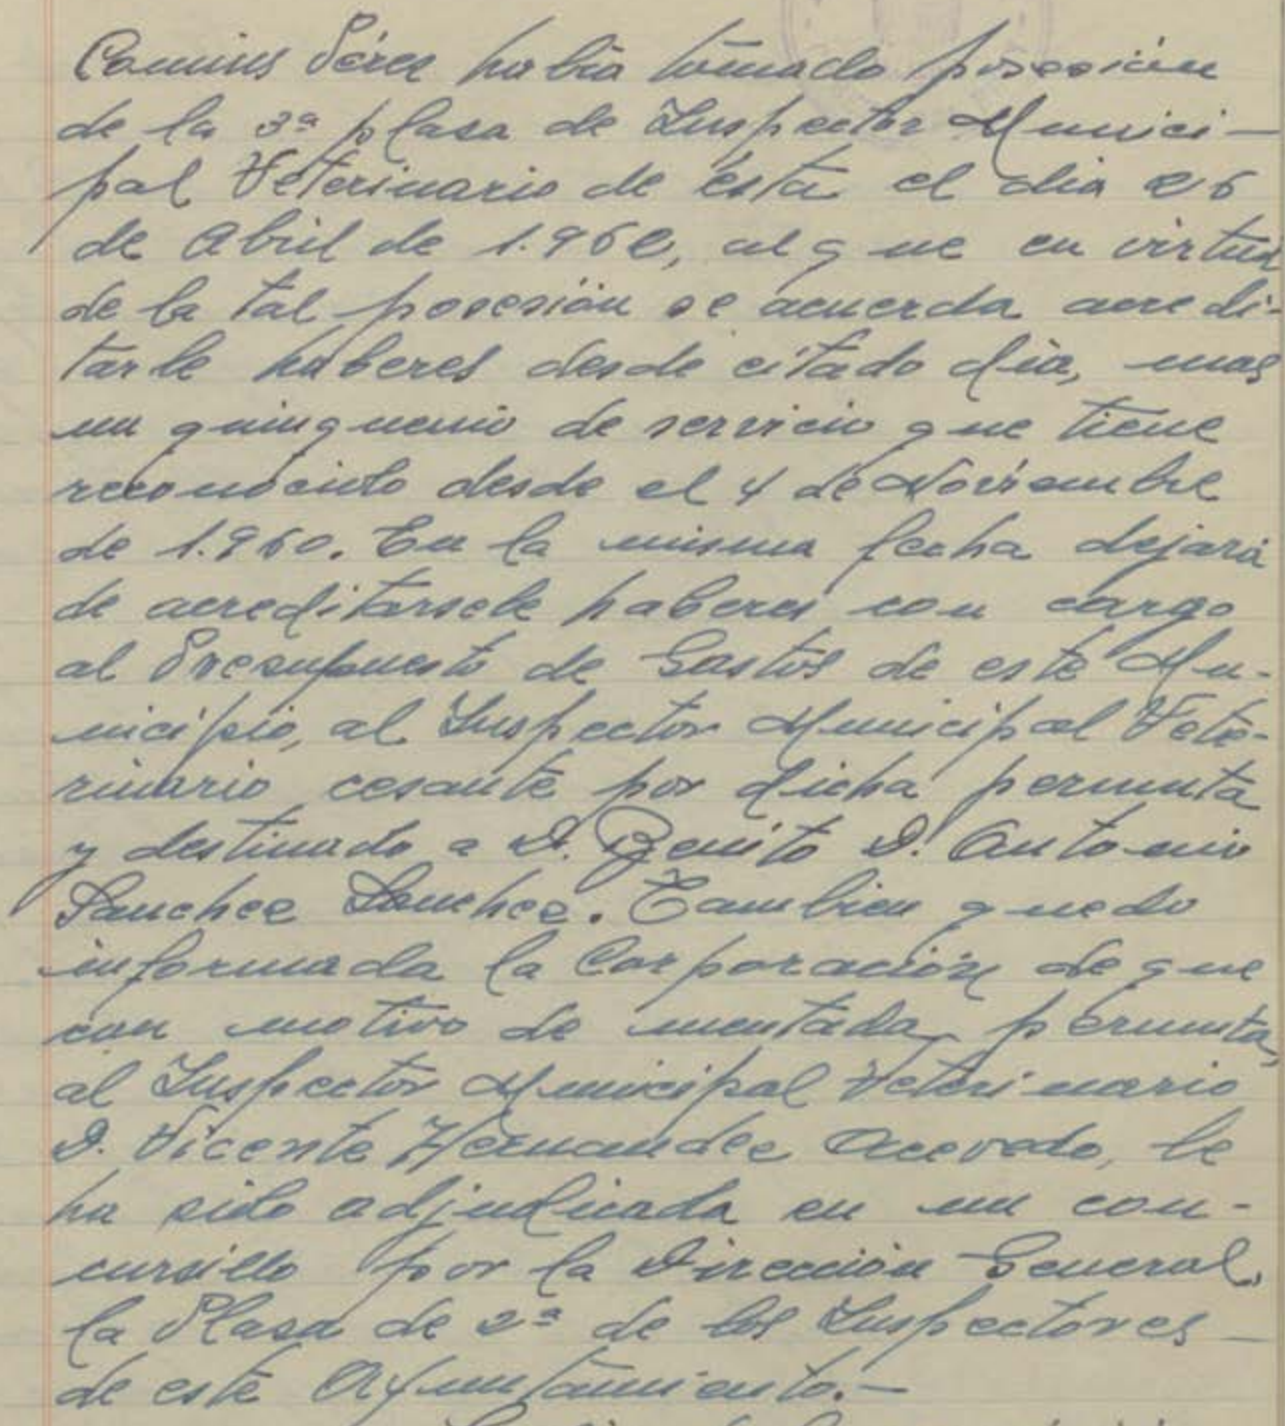 Camins Pérez había tomado posesión
de la 3ª plasa de Inspector Munici-
pal Veterinario de ésta el dia 26
de Abril de 1.962, al que en virtud
de la tal posesión se acuerda acredi-
tarle haberes desde citado día, mas
un quinquenio de servicio que tiene
reconocido desde el 4 de Noviembre
de 1.960. En la misma fecha dejará
de acreditarsele haberes con cargo
al Presupuesto de Gastos de este Mu-
nicipio, al Inspector Municipal Vete-
rinario cesante por dicha permuta
y destinado a D. Benito D. Antonio
Sanchez Sanchez. Tambien quedo
informada la Corporación de que
con motivo de mentada permuta,
al Inspector Municipal Veterinario
D. Vicente Hernandez Acevedo, le
ha sido adjudicada en un con-
cursillo por la Dirección General,
la Plasa de 2ª de los Inspectores
de este Ayuntamiento.-